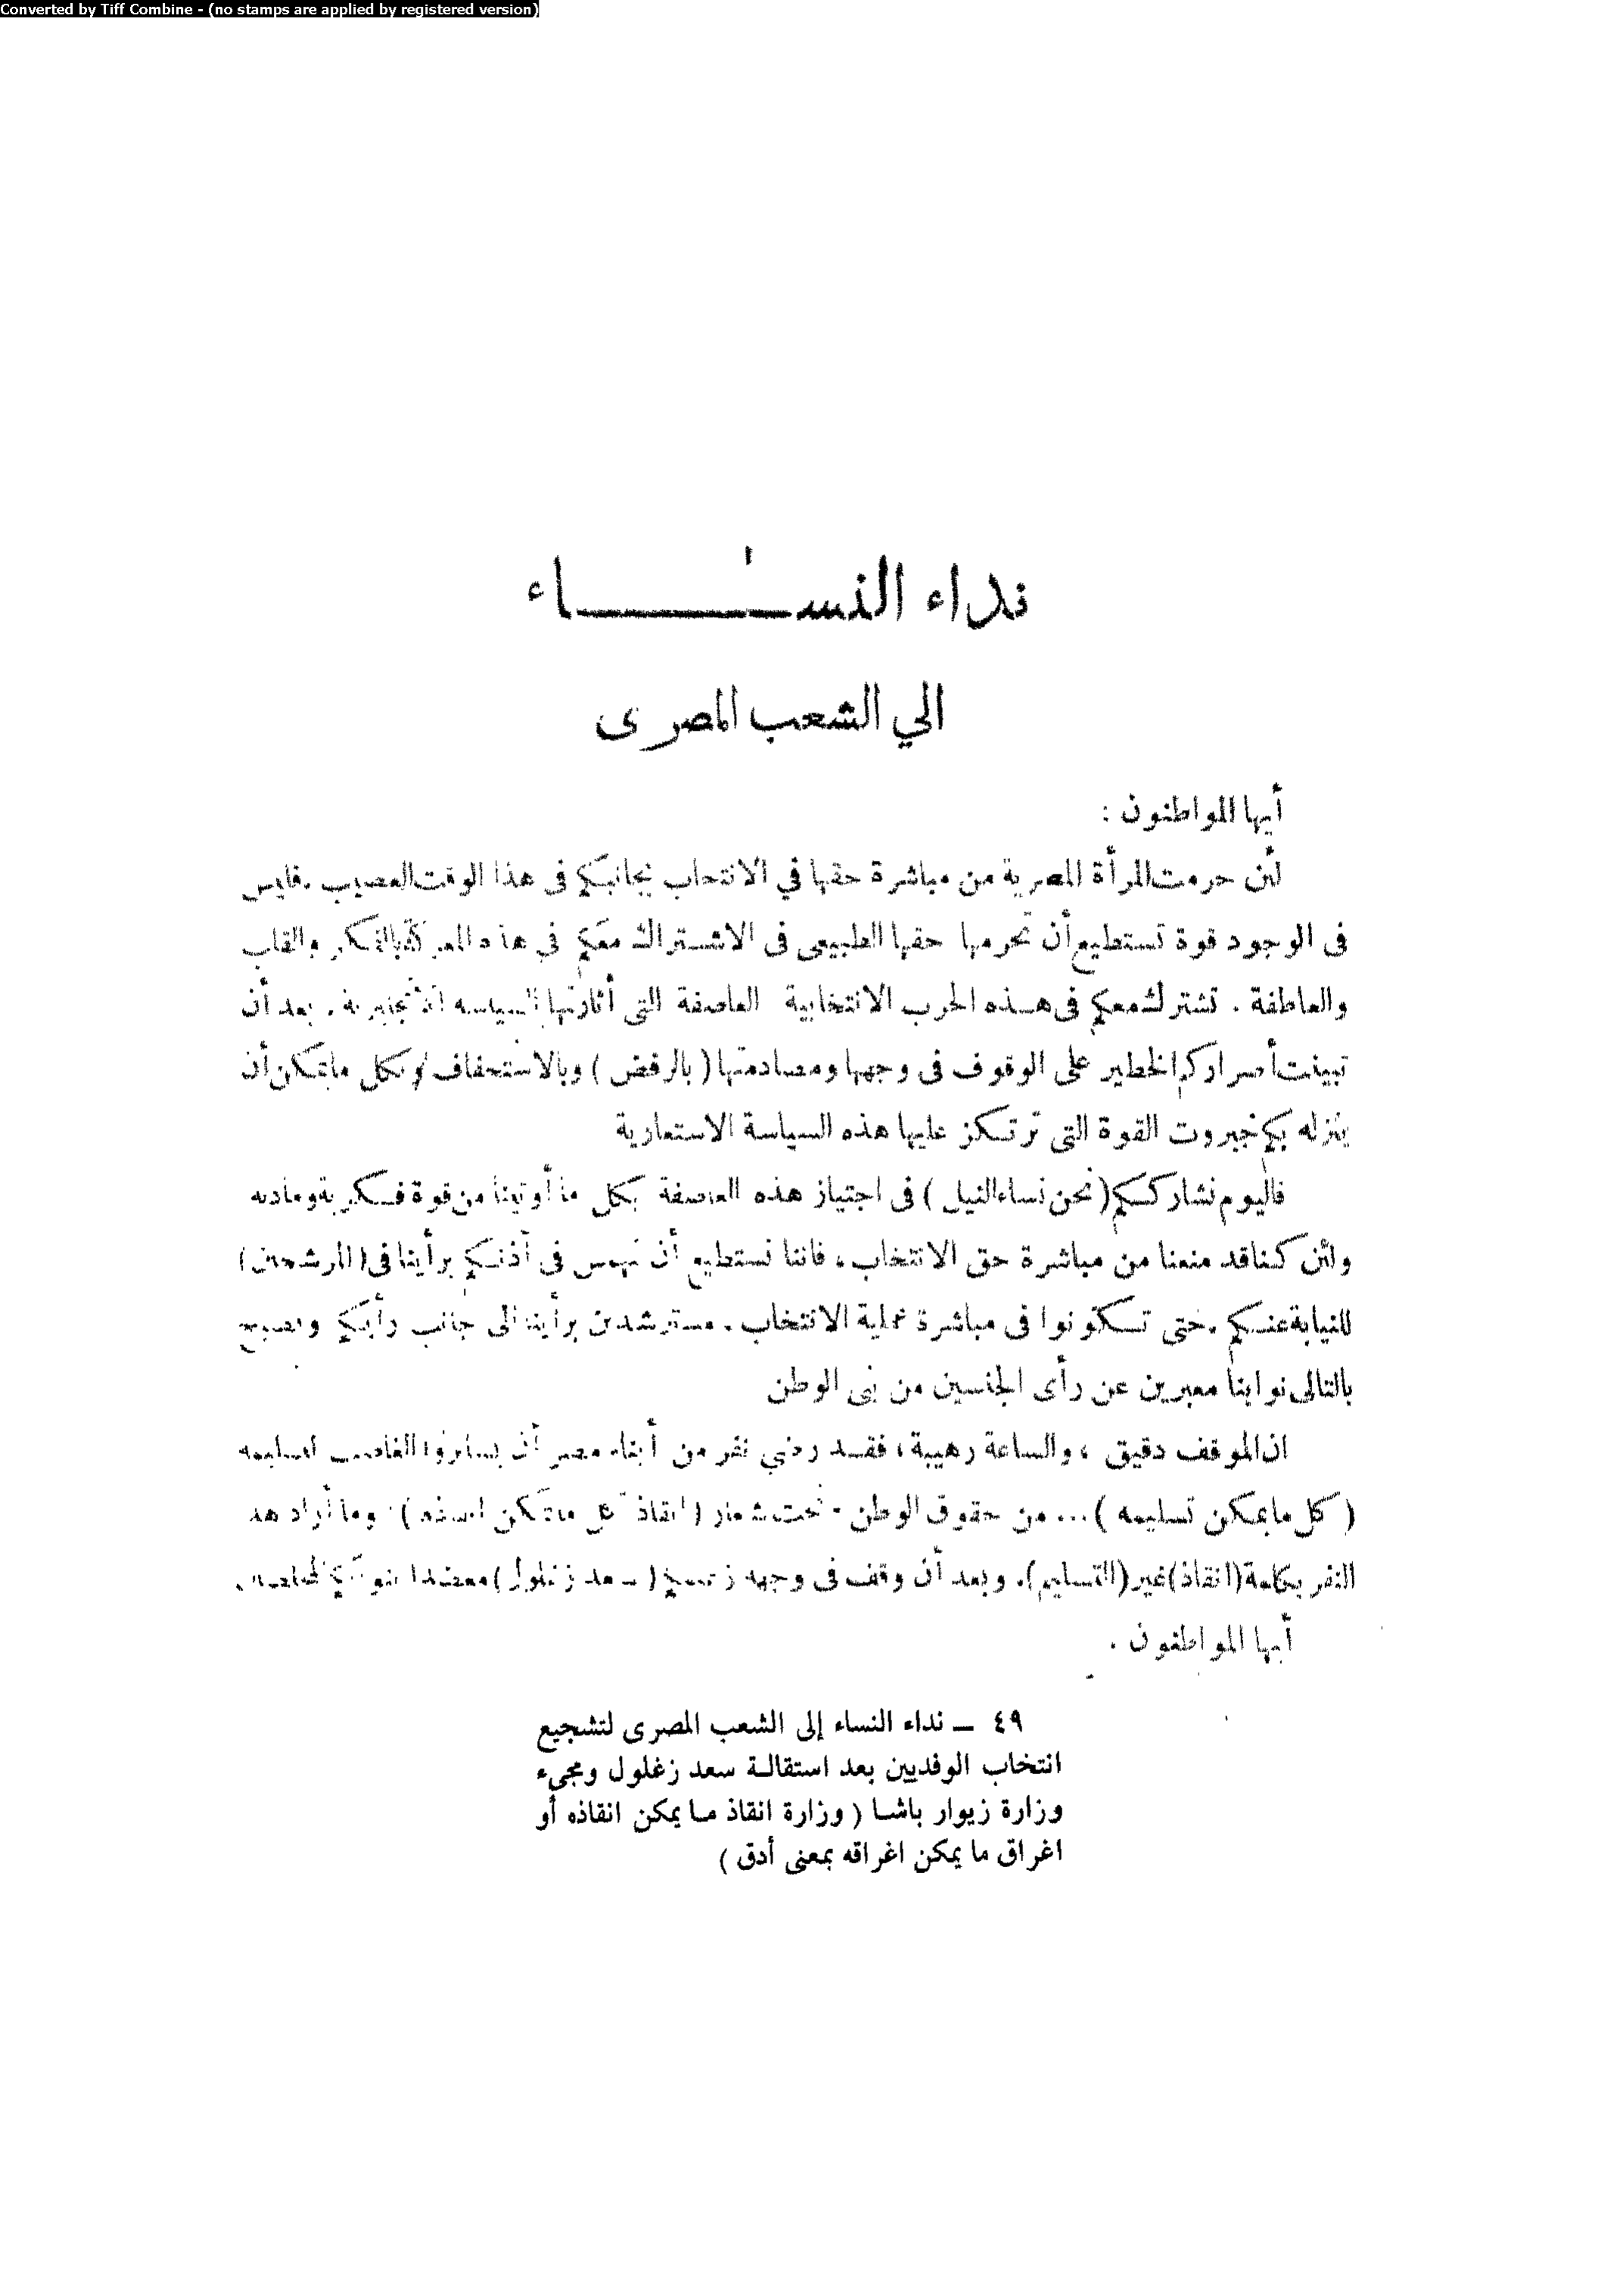 Converted by Tiff Combine - (no stamps are applied by registered version)
نداء النساء
الي الشعب المصرى
أيها المواطنون :
لئن حرمت المرأة المصرية من مباشرة حقها في الانتخاب بجانبكم فى هذا الوقت العصيب . فليس
فى الوجود قوة تستطيع أن تحرمها حقها الطبيعى فى الاشتراك معكم في هذه المعركة بالفكر والقلب
والعاطفة . تشترك معكم فى هذه الحرب الانتخابية العاصفة التى أثارتها السياسة الانجليزية . بعد أن
تبينت أصراركم الخطير على الوقوف فى وجهها ومصادمتها ( بالرفض ) وبالاستخفاف وبكل مايمكن أن
ينزله بكم جبروت القوة التى ترتكز عليها هذه السياسة الاستعارية
فاليوم نشارككم ( نحن نساء النيل ) فى اجتياز هذه العاصفة بكل ما أوتينا من قوة فكرية ومادية
ولئن كنا قد منعنا من مباشرة حق الانتخاب ، فاننا نستطيع أن نهمس فى آذنكم برأينا فى ( المرشحين )
للنيابة عنكم . حتى تكونوا فى مباشرة عملية الانتخاب . مسترشدين برأينا الى جانب رأيكم ويصبح
بالتالى نوابنا معبرين عن رأى الجنسين من بنى الوطن
ان الموقف دقيق ، والساعة رهيبة ، فقد رضي نفر من أبناء مصر أن يسايروا الغاصب لتسليمه
( كل ما يمكن تسليمه ) ... من حقوق الوطن - تحت شعار ( انقاذ كل ما يمكن انقاذه ) وما أراد هذا
النفر بكلمة ( انقاذ ) غير ( التسليم ) . وبعد أن وقف فى وجهه زعيمكم ( سعد زغلول ) معتمدا
أيها المواطنون .
٤٩ – نداء النساء إلى الشعب المصرى لتشجيع
انتخاب الوفديين بعد استقالة سعد زغلول ومجيء
وزارة زيوار باشا ( وزارة انقاذ ما يمكن انقاذه أو
اغراق ما يمكن اغراقه بمعنى أدق )